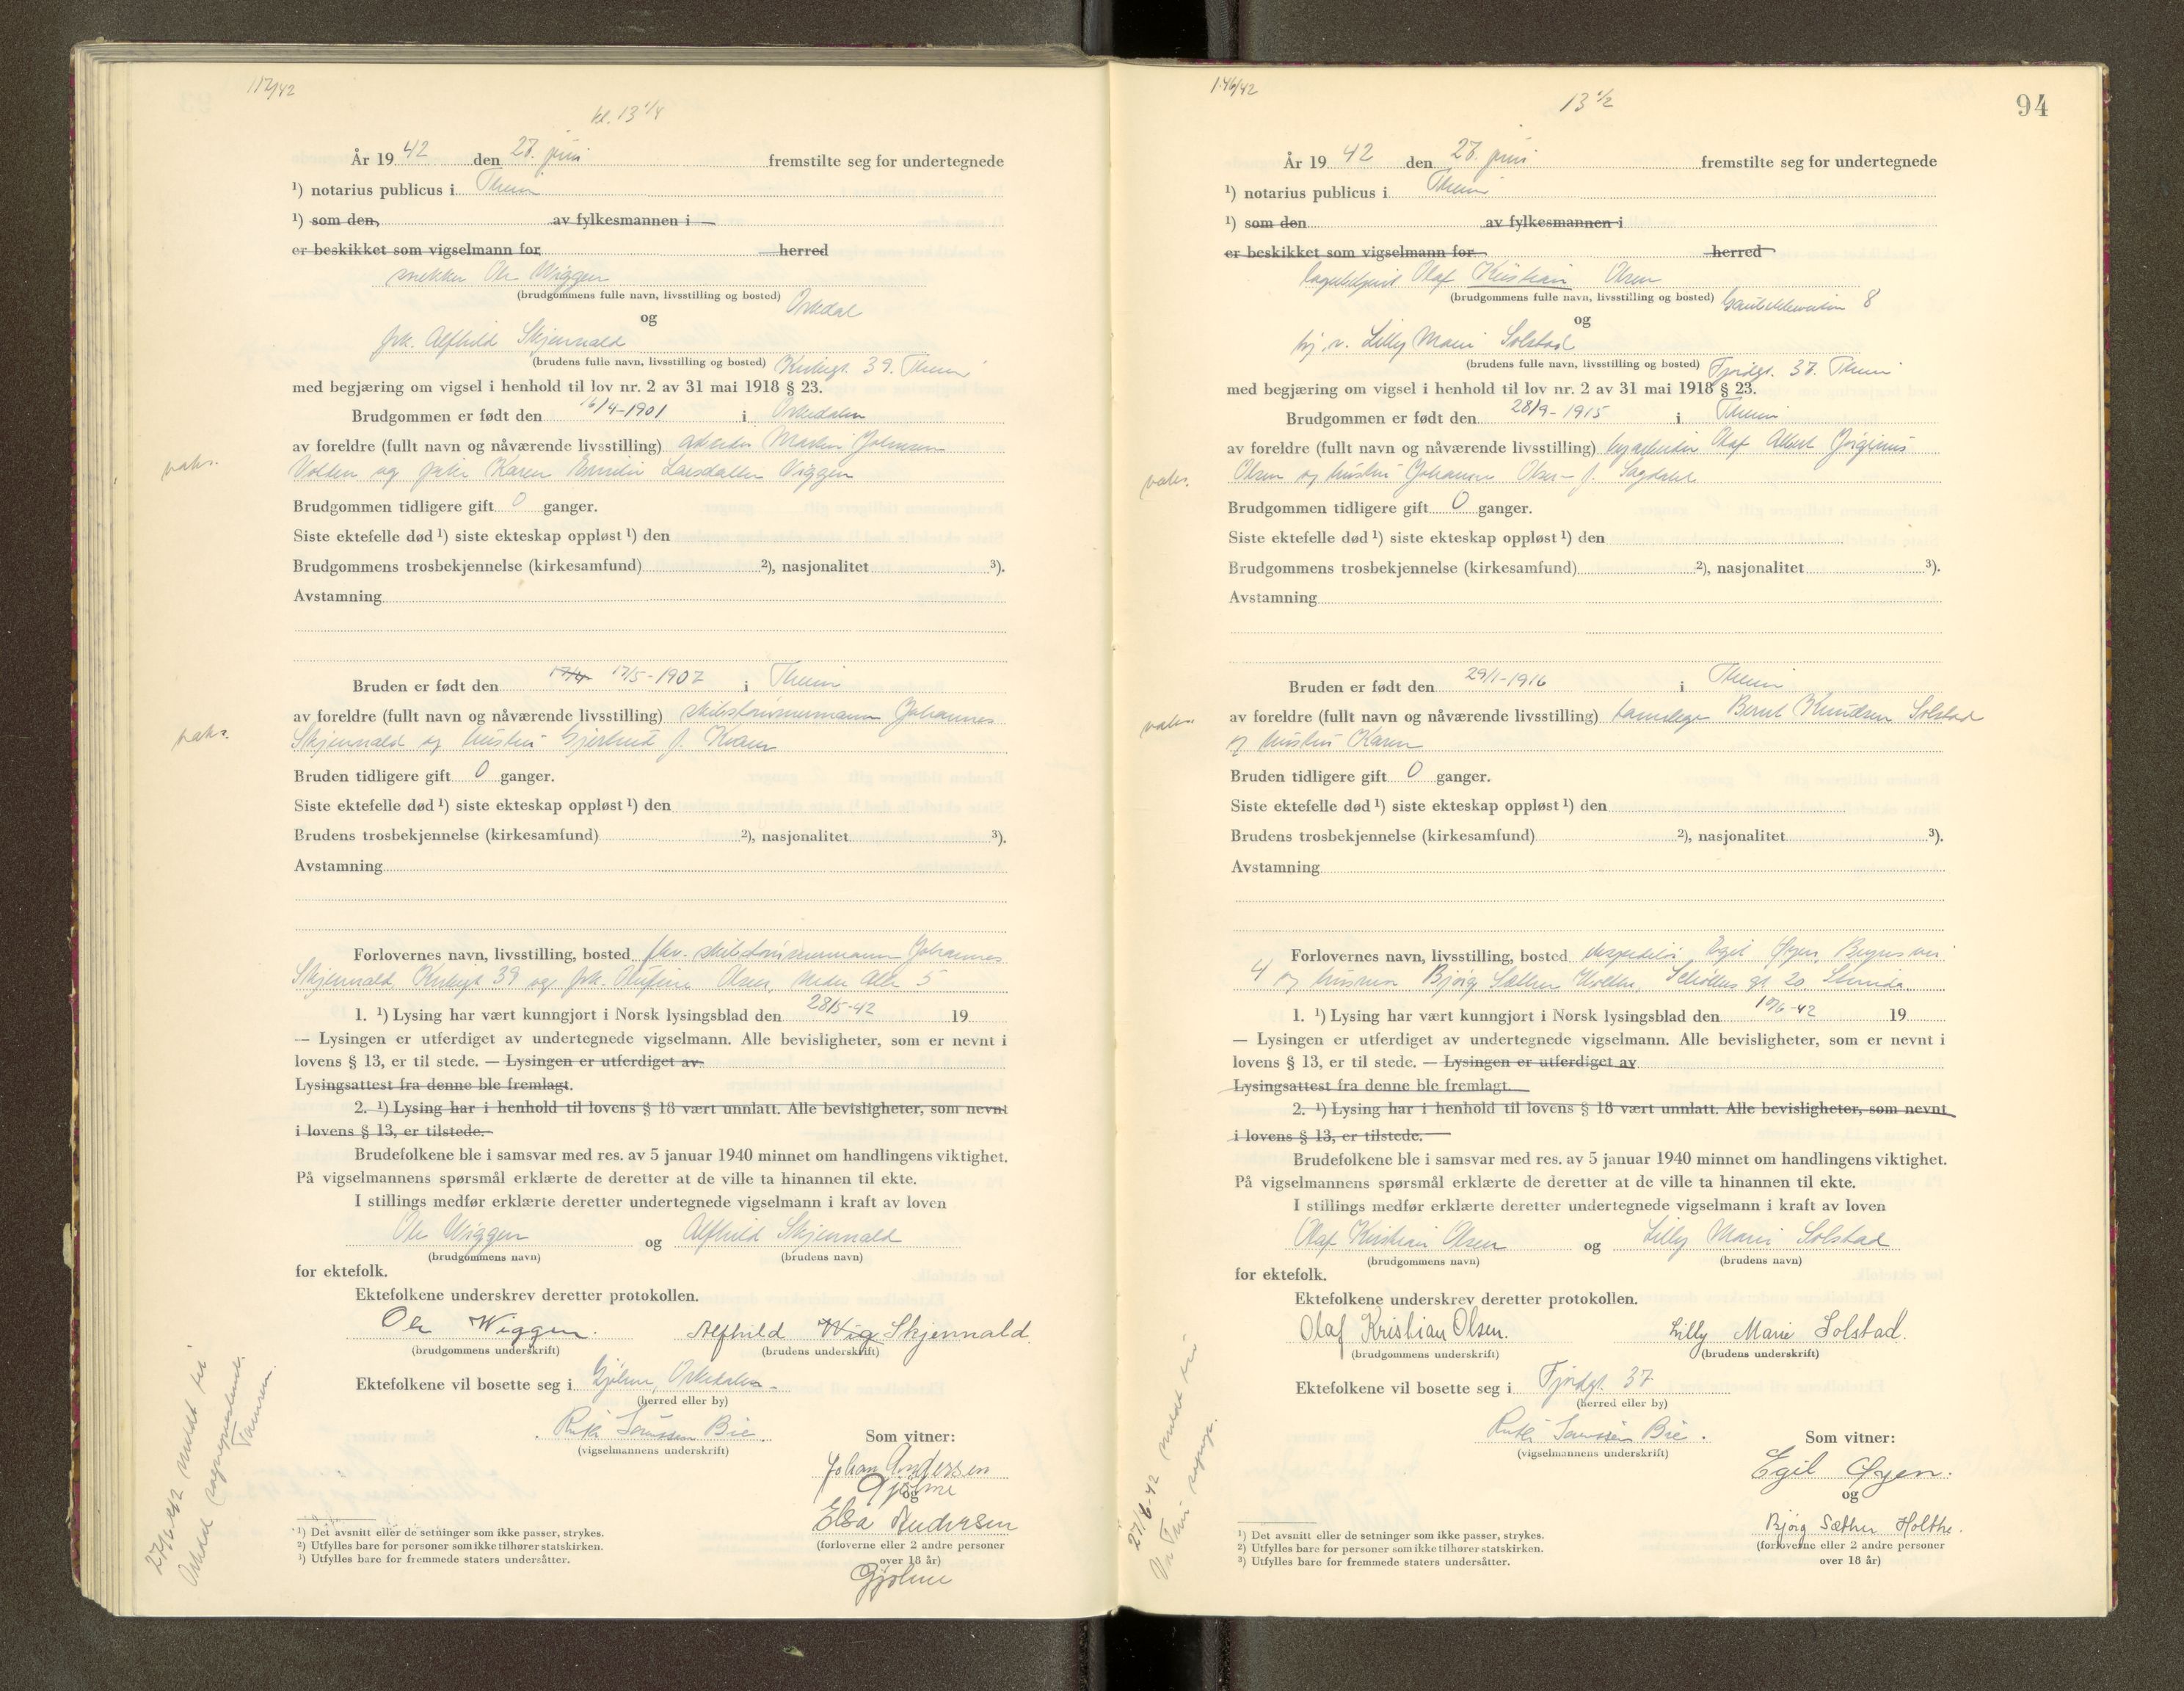 112/42
kl. 13 1/4
År 19 42 den 27. juni fremstilte seg for undertegnede
¹) notarius publicus i Thum
¹) som den, av fylkesmannen i
er beskikket som vigselmann for herred
snekker Ole Wiggen
(brudgommens fulle navn, livsstilling og bosted) Orkedal
og
frk. Alfhild Skjennald
(brudens fulle navn, livsstilling og bosted) Kirkegt. 39. Thum
med begjæring om vigsel i henhold til lov nr. 2 av 31 mai 1918 § 23.
Brudgommen er født den 16/4-1901 i Orkedalen
av foreldre (fullt navn og nåværende livsstilling) arbeider Martin Johnsen
vaks.
Volden og Karen Emilie Larsdatter Viggen
Brudgommen tidligere gift 0 ganger.
Siste ektefelle død ¹) siste ekteskap oppløst ¹) den
Brudgommens trosbekjennelse (kirkesamfund) ²), nasjonalitet ³).
Avstamning
Bruden er født den 17/4 17/5-1907 i Thum
av foreldre (fullt navn og nåværende livsstilling) skibstømmermann Johannes
vaks.
Skjennald og hustru Gjertrud f. Kvam
Bruden tidligere gift 0 ganger.
Siste ektefelle død ¹) siste ekteskap oppløst ¹) den
Brudens trosbekjennelse (kirkesamfund) ²), nasjonalitet ³).
Avstamning
Forlovernes navn, livsstilling, bosted fhv. skibstømmermann Johannes
Skjennald, Kirkegt 39 og frk. Olufine Olsen, Nedre Alle 5
1. ¹) Lysing har vært kunngjort i Norsk lysingsblad den 28/5-42 19
— Lysingen er utferdiget av undertegnede vigselmann. Alle bevisligheter, som er nevnt i
lovens § 13, er til stede. — Lysingen er utferdiget av
Lysingsattest fra denne ble fremlagt.
2. ¹) Lysing har i henhold til lovens § 18 vært unnlatt. Alle bevisligheter, som nevnt
i lovens § 13, er tilstede.
Brudefolkene ble i samsvar med res. av 5 januar 1940 minnet om handlingens viktighet.
På vigselmannens spørsmål erklærte de deretter at de ville ta hinannen til ekte.
I stillings medfør erklærte deretter undertegnede vigselmann i kraft av loven
Ole Wiggen og Alfhild Skjennald
(brudgommens navn) (brudens navn)
for ektefolk.
Ektefolkene underskrev deretter protokollen.
Ole Wiggen. Alfhild Wig Skjennald.
(brudgommens underskrift) (brudens underskrift)
Ektefolkene vil bosette seg i Gjölme, Orkedalen.
(herred eller by)
Ruth Sørenssen Bie.
(vigselmannens underskrift)
Som vitner:
Johan Andersen
Gjölme
og
Elsa Andersen
(forloverne eller 2 andre personer
over 18 år)
Gjölme
¹) Det avsnitt eller de setninger som ikke passer, strykes.
²) Utfylles bare for personer som ikke tilhører statskirken.
³) Utfylles bare for fremmede staters undersåtter.
27/6-42 meldt til
Orkedal sogneprestemb.
Fannrem.
146/42
13 1/2
94
År 19 42 den 27. juni fremstilte seg for undertegnede
¹) notarius publicus i Thum
¹) som den av fylkesmannen i
er beskikket som vigselmann for herred
lagerbetjent Olaf Kristian Olsen
(brudgommens fulle navn, livsstilling og bosted) 8
og
hj. v. Lilly Marie Solstad
(brudens fulle navn, livsstilling og bosted) Fjordgt. 37. Thum
med begjæring om vigsel i henhold til lov nr. 2 av 31 mai 1918 § 23.
Brudgommen er født den 28/9-1915 i Thum
av foreldre (fullt navn og nåværende livsstilling) Olaf Albert Jørginus
vaks.
Olsen og hustru Johanna Olsen f. Sagdahl
Brudgommen tidligere gift 0 ganger.
Siste ektefelle død ¹) siste ekteskap oppløst ¹) den
Brudgommens trosbekjennelse (kirkesamfund) ²), nasjonalitet ³).
Avstamning
Bruden er født den 29/1-1916 i Thum
av foreldre (fullt navn og nåværende livsstilling) tannlege Bernt Knudsen Solstad
vaks.
og hustru Karen
Bruden tidligere gift 0 ganger.
Siste ektefelle død ¹) siste ekteskap oppløst ¹) den
Brudens trosbekjennelse (kirkesamfund) ²), nasjonalitet ³).
Avstamning
Forlovernes navn, livsstilling, bosted ekspeditør Egil Øyen, vei
4 og Bjørg Sæther Holthe, gt 20 Strinda
1. ¹) Lysing har vært kunngjort i Norsk lysingsblad den 10/6-42 19
— Lysingen er utferdiget av undertegnede vigselmann. Alle bevisligheter, som er nevnt i
lovens § 13, er til stede. — Lysingen er utferdiget av
Lysingsattest fra denne ble fremlagt.
2. ¹) Lysing har i henhold til lovens § 18 vært unnlatt. Alle bevisligheter, som nevnt
i lovens § 13, er tilstede.
Brudefolkene ble i samsvar med res. av 5 januar 1940 minnet om handlingens viktighet.
På vigselmannens spørsmål erklærte de deretter at de ville ta hinannen til ekte.
I stillings medfør erklærte deretter undertegnede vigselmann i kraft av loven
Olaf Kristian Olsen og Lilly Marie Solstad
(brudgommens navn) (brudens navn)
for ektefolk.
Ektefolkene underskrev deretter protokollen.
Olaf Kristian Olsen. Lilly Marie Solstad.
(brudgommens underskrift) (brudens underskrift)
Ektefolkene vil bosette seg i Fjordgt. 37
(herred eller by)
Ruth Sørenssen Bie.
(vigselmannens underskrift)
Som vitner:
Egil Øyen.
og
Bjørg Sæther Holthe.
(forloverne eller 2 andre personer
over 18 år)
¹) Det avsnitt eller de setninger som ikke passer, strykes.
²) Utfylles bare for personer som ikke tilhører statskirken.
³) Utfylles bare for fremmede staters undersåtter.
27/6-42 meldt til